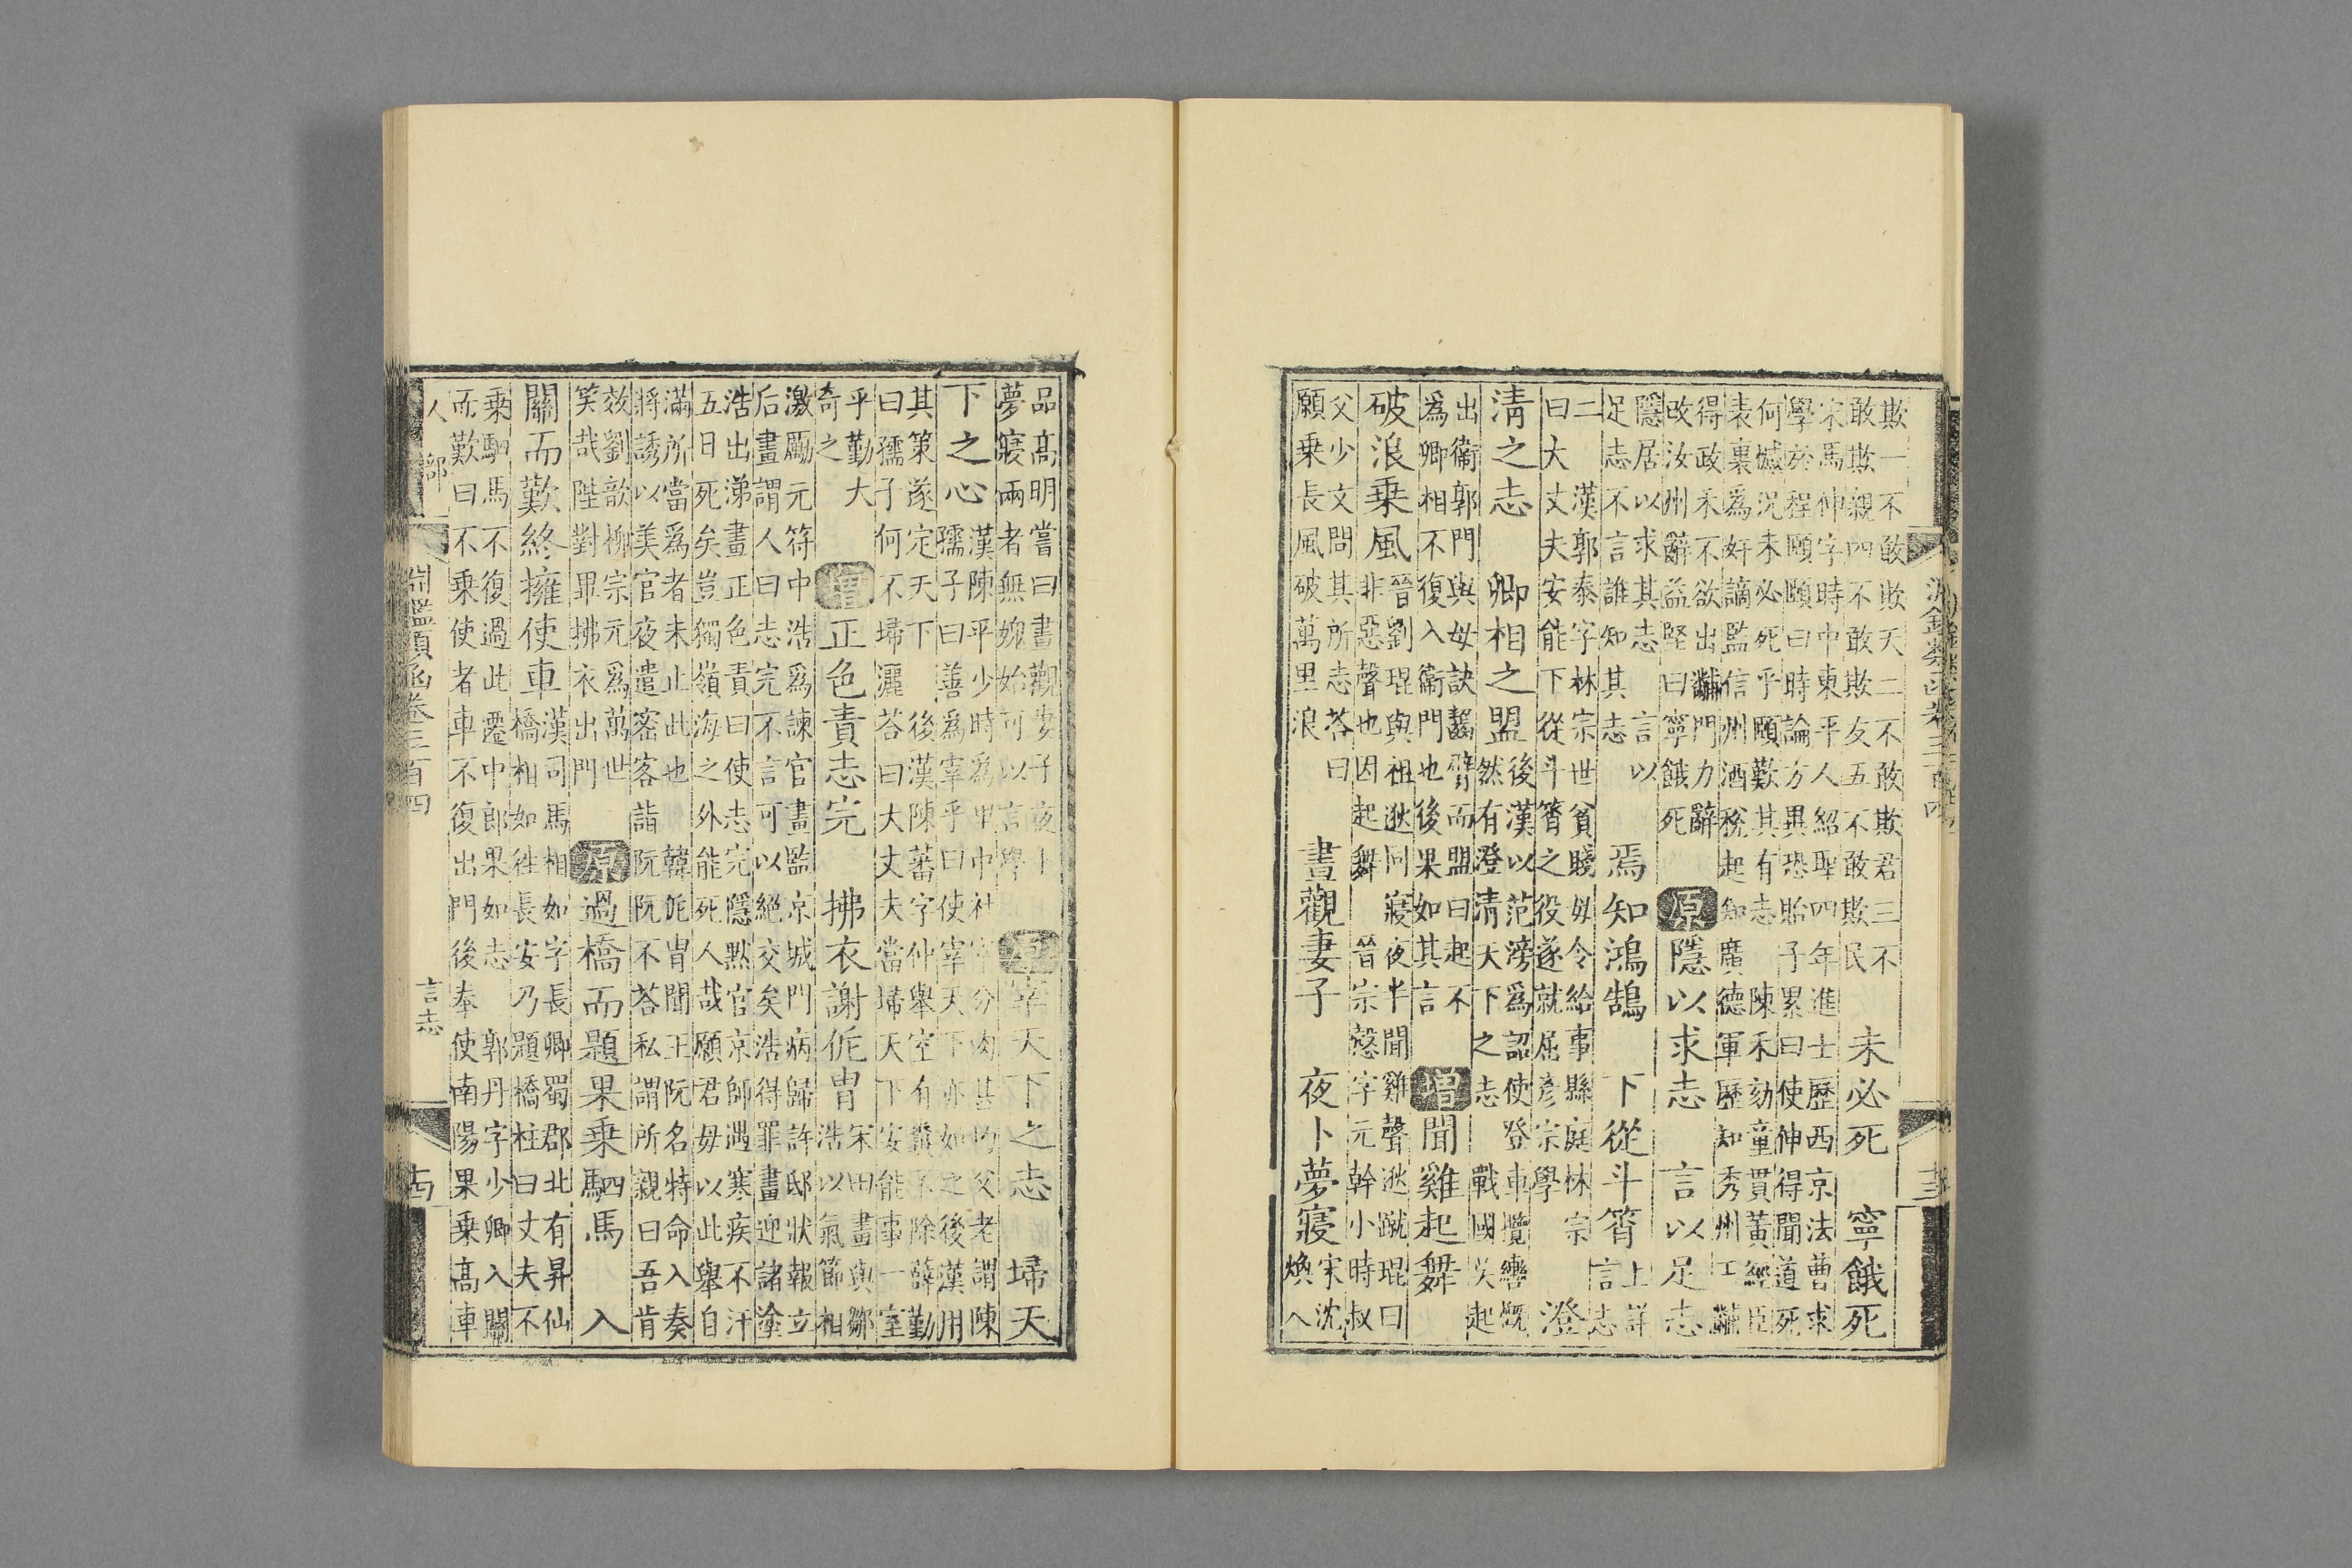 淵鑑類函卷三百四 十三
欺一不敢欺天二不敢欺君三不
敢欺親四不敢欺友五不敢欺民
未必死 寧餓死
宋馬伸字時中東平人紹聖四年進士歷西京法曹求
學於程頤頤曰時論方異恐貽子累曰使伸得聞道死
何憾況未必死乎頤歎其有志 陳禾劾童貫黃經臣
表裏爲奸謫監信州酒稅起知廣德軍歷知秀州王黼
得政禾不欲出黼門力辭
改汝州辭益堅曰寧餓死
原 隱以求志 言以足志
隱居以求其志 言以
足志不言誰知其志
焉知鴻鵠 下從斗筲
上詳
言志
二 漢郭泰字林宗世貧賤毋令給事縣庭林宗
曰大丈夫安能下從斗筲之役遂就屈彥宗學
澄
清之志 卿相之盟
後漢以范滂爲詔使登車攬轡慨
然有澄清天下之志 戰國吳起
出衞郭門與母訣齧臂而盟曰起不
爲卿相不復入衞門也後果如其言
增 聞雞起舞
破浪乘風
晉劉琨與祖逖同寢夜半聞雞聲逖蹴琨曰
非惡聲也因起舞 晉宗慤字元幹小時叔
父少文問其所志荅曰
願乘長風破萬里浪
晝觀妻子 夜卜夢寢
宋沈
煥人
品高明嘗曰晝觀妻子夜卜
夢寢兩者無媿始可以言學
原 宰天下之志 埽天
下之心
漢陳平少時爲里中社宰分肉甚均父老謂陳
孺子曰善爲宰乎曰使宰天下亦如之後漢用
其策遂定天下 後漢陳蕃字仲舉室有糞不除薛勤
曰孺子何不埽灑荅曰大丈夫當埽天下安能事一室
乎勤大
奇之
增 正色責志完 拂衣謝侂冑
宋田晝與鄒
浩以氣節相
激厲元符中浩爲諫官晝監京城門病歸許邸狀報立
后晝謂人曰志完不言可以絕交矣浩得罪晝迎諸塗
浩出涕晝正色責曰使志完隱黙官京師遇寒疾不汗
五日死矣豈獨嶺海之外能死人哉願君毋以此舉自
滿所當爲者未止此也 韓侂冑聞王阮名特命入奏
將誘以美官夜遣密客詣阮阮不荅私謂所親曰吾肯
效劉歆柳宗元爲萬世
笑哉陛對畢拂衣出門
原 過橋而題果乘駟馬 入
關而歎終擁使車
漢司馬相如字長卿蜀郡北有昇仙
橋相如徃長安乃題橋柱曰丈夫不
乘駟馬不復過此遷中郎果如志 郭丹字少卿入關
而歎曰不乘使者車不復出門後奉使南陽果乘高車
人部 淵鑑類函卷三百四 言志 古